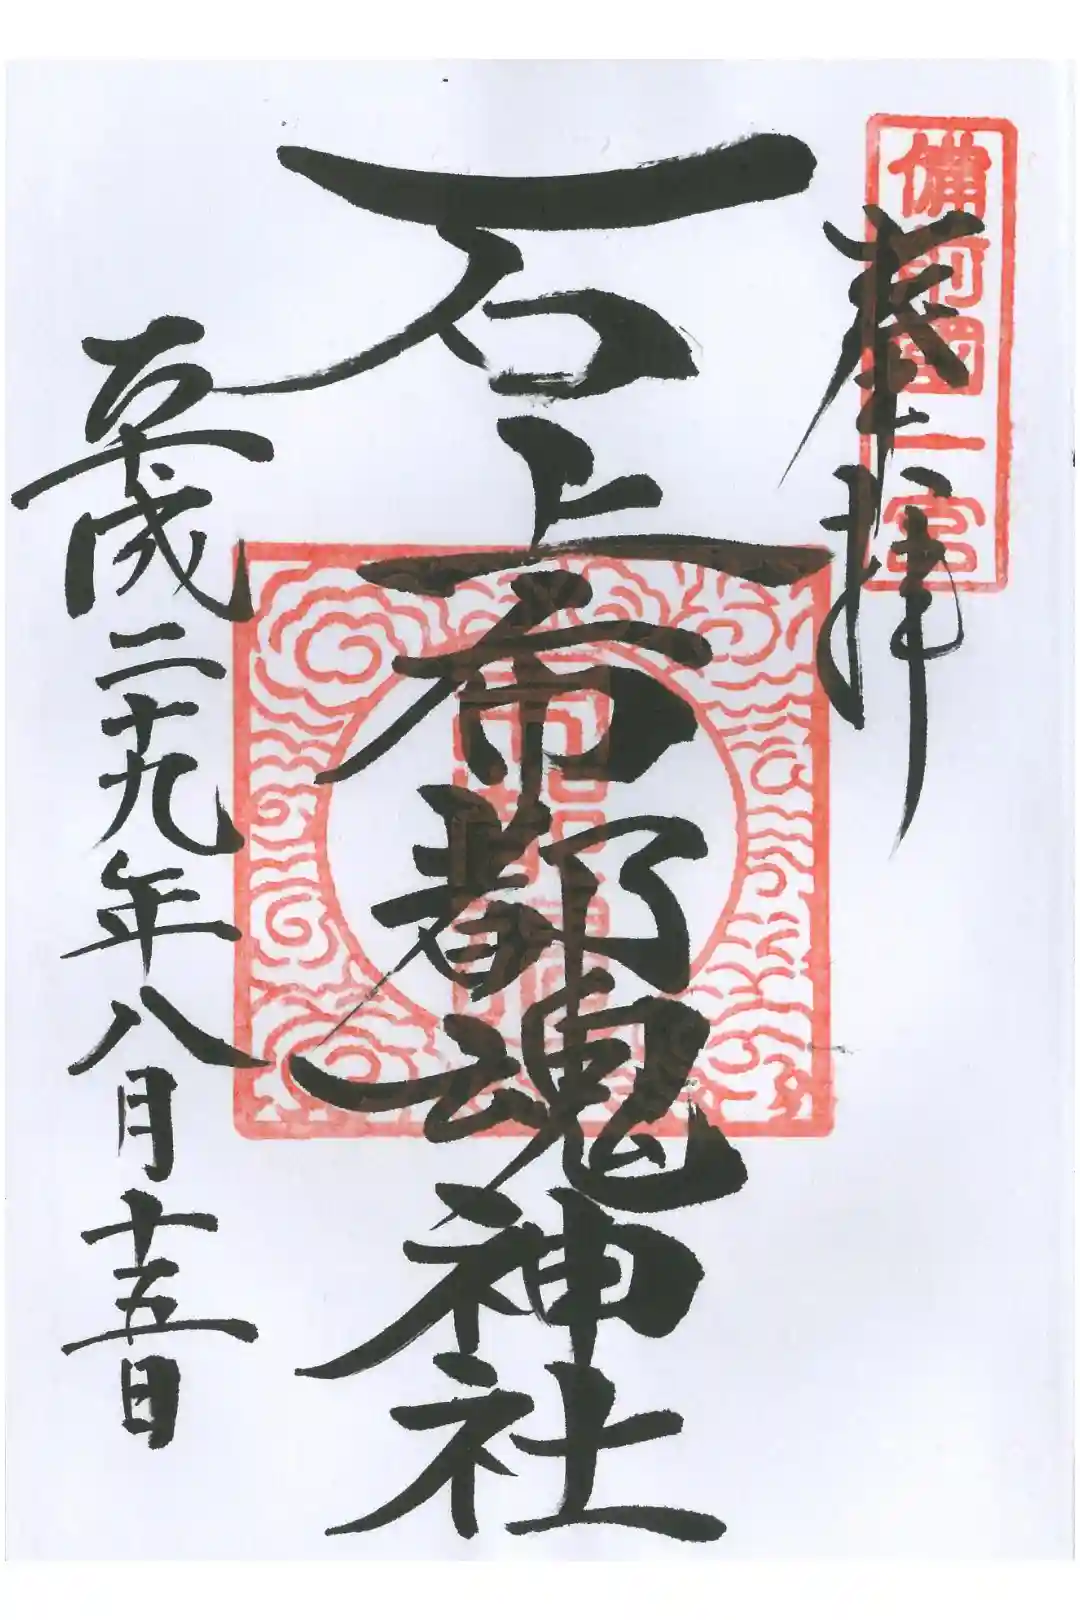 備前國一宮
奉拝
石上布都魂神社
平成二十九年八月十五日